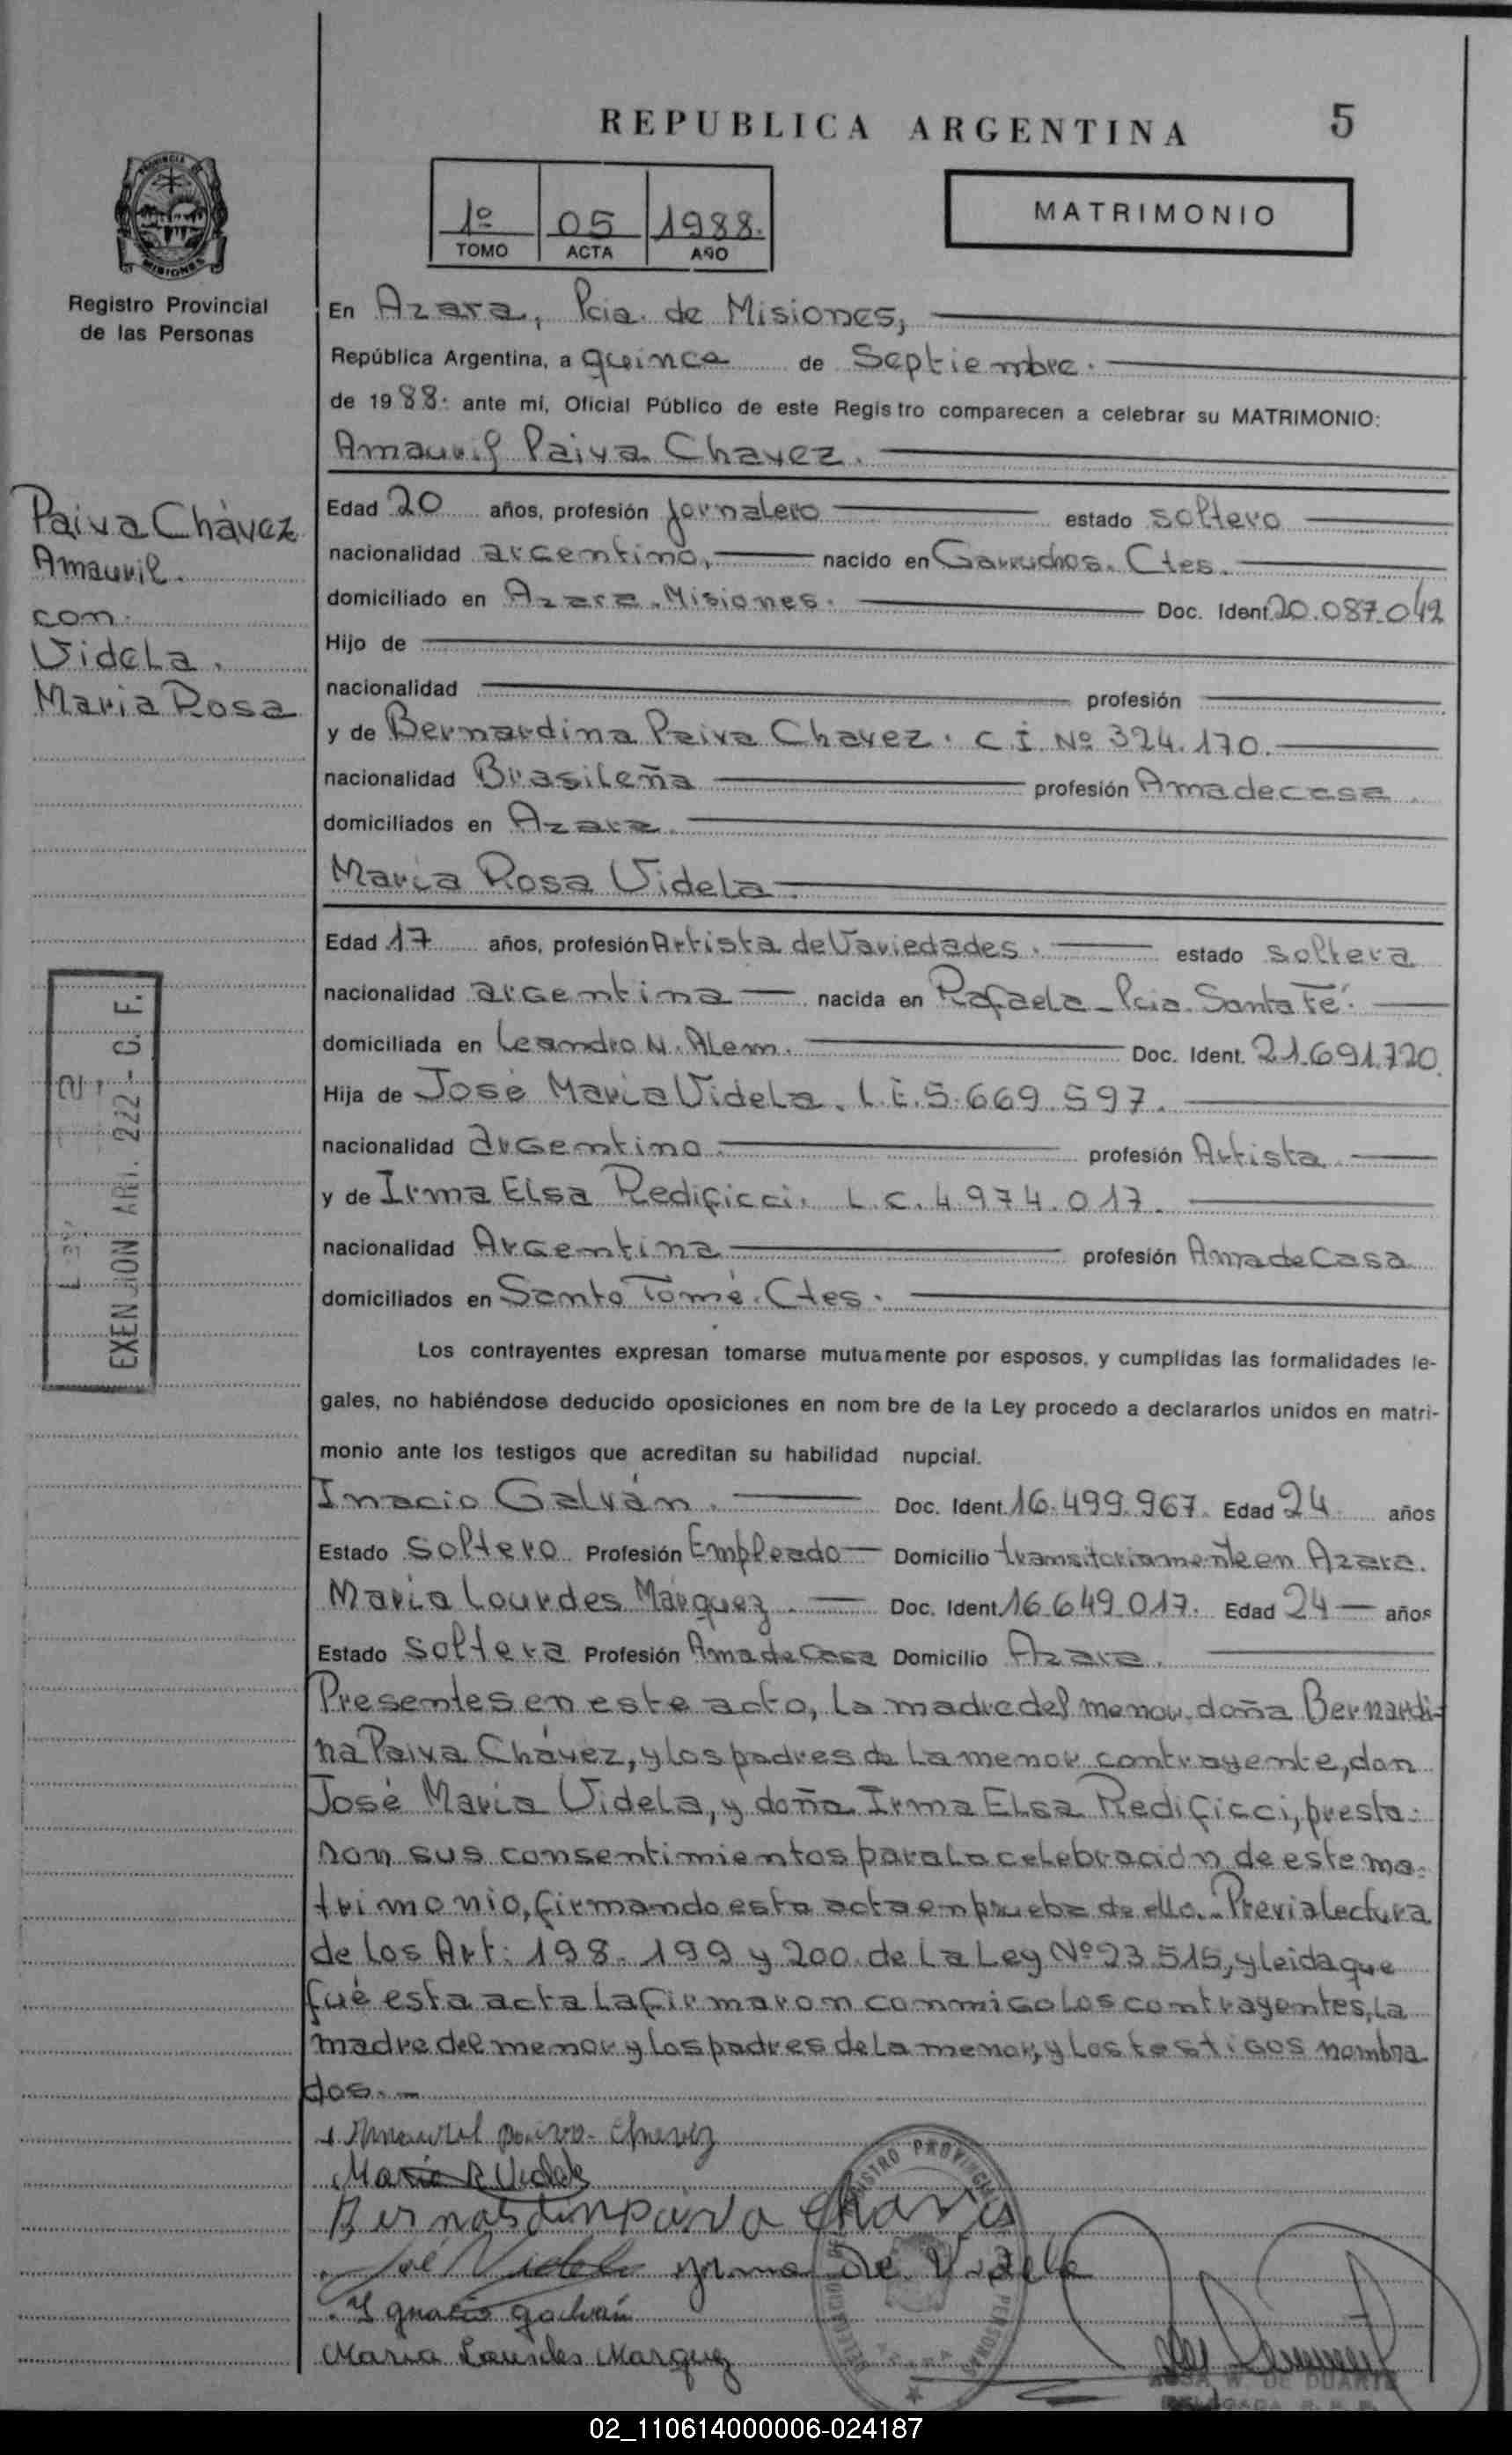 REPUBLICA ARGENTINA
5
PROVINCIA DE
MISIONES
Registro Provincial
de las Personas
1º
05
1988.
TOMO
ACTA
AÑO
MATRIMONIO
En Azara, Pcia. de Misiones,
República Argentina, a quince de Septiembre.
de 1988. ante mí, Oficial Público de este Registro comparecen a celebrar su MATRIMONIO:
Amauril Paiva Chavez.
Paiva Chávez
Amauril.
con.
Videla.
Maria Rosa
Edad 20 años, profesión jornalero estado soltero
nacionalidad argentino, nacido en Garruchos. Ctes.
domiciliado en Azara. Misiones. Doc. Ident. 20.087.042
Hijo de
nacionalidad profesión
y de Bernardina Paiva Chavez. C.I. Nº 324.170.
nacionalidad Brasileña profesión Ama de casa.
domiciliados en Azara.
María Rosa Videla.
Edad 17 años, profesión Artista de Variedades. estado soltera
nacionalidad argentina nacida en Rafaela_Pcia. Santa Fé.
domiciliada en Leandro N. Alem. Doc. Ident. 21.691.720.
Hija de José María Videla. L.E. 5.669.597.
nacionalidad argentino. profesión Artista.
y de Irma Elsa Redificci. L.C. 4.974.017.
nacionalidad Argentina profesión Ama de Casa
domiciliados en Santo Tomé. Ctes.
EXENCION ART. 222 - C. F.
Los contrayentes expresan tomarse mutuamente por esposos, y cumplidas las formalidades le-
gales, no habiéndose deducido oposiciones en nom bre de la Ley procedo a declararlos unidos en matri-
monio ante los testigos que acreditan su habilidad nupcial.
Inacio Galván. Doc. Ident. 16.499.967. Edad 24 años
Estado soltero Profesión Empleado Domicilio transitoriamente en Azara.
María Lourdes Márquez. Doc. Ident. 16.649.017. Edad 24 años
Estado soltera Profesión Ama de Casa Domicilio Azara.
Presentes en este acto, la madre del menor, doña Bernardi-
na Paiva Chávez, y los padres de la menor contrayente, don
José María Videla, y doña Irma Elsa Redificci, presta-
ron sus consentimientos para la celebración de este ma-
trimonio, firmando esta acta en prueba de ello.- Previa lectura
de los Art: 198. 199 y 200. de la Ley Nº 23.515, y leida que
fué esta acta la firmaron conmigo los contrayentes, la
madre del menor y los padres de la menor, y los testigos nombra
dos.-
Amauril paiva. Chavez
Maria R Videla
Bernardin paiva Chavis
José Videla yrma De Videla
Ygnacio galván
Maria Lourdes Marquez
ROSA W. DE DUARTE
DELEGADA R. P. P.
02_110614000006-024187